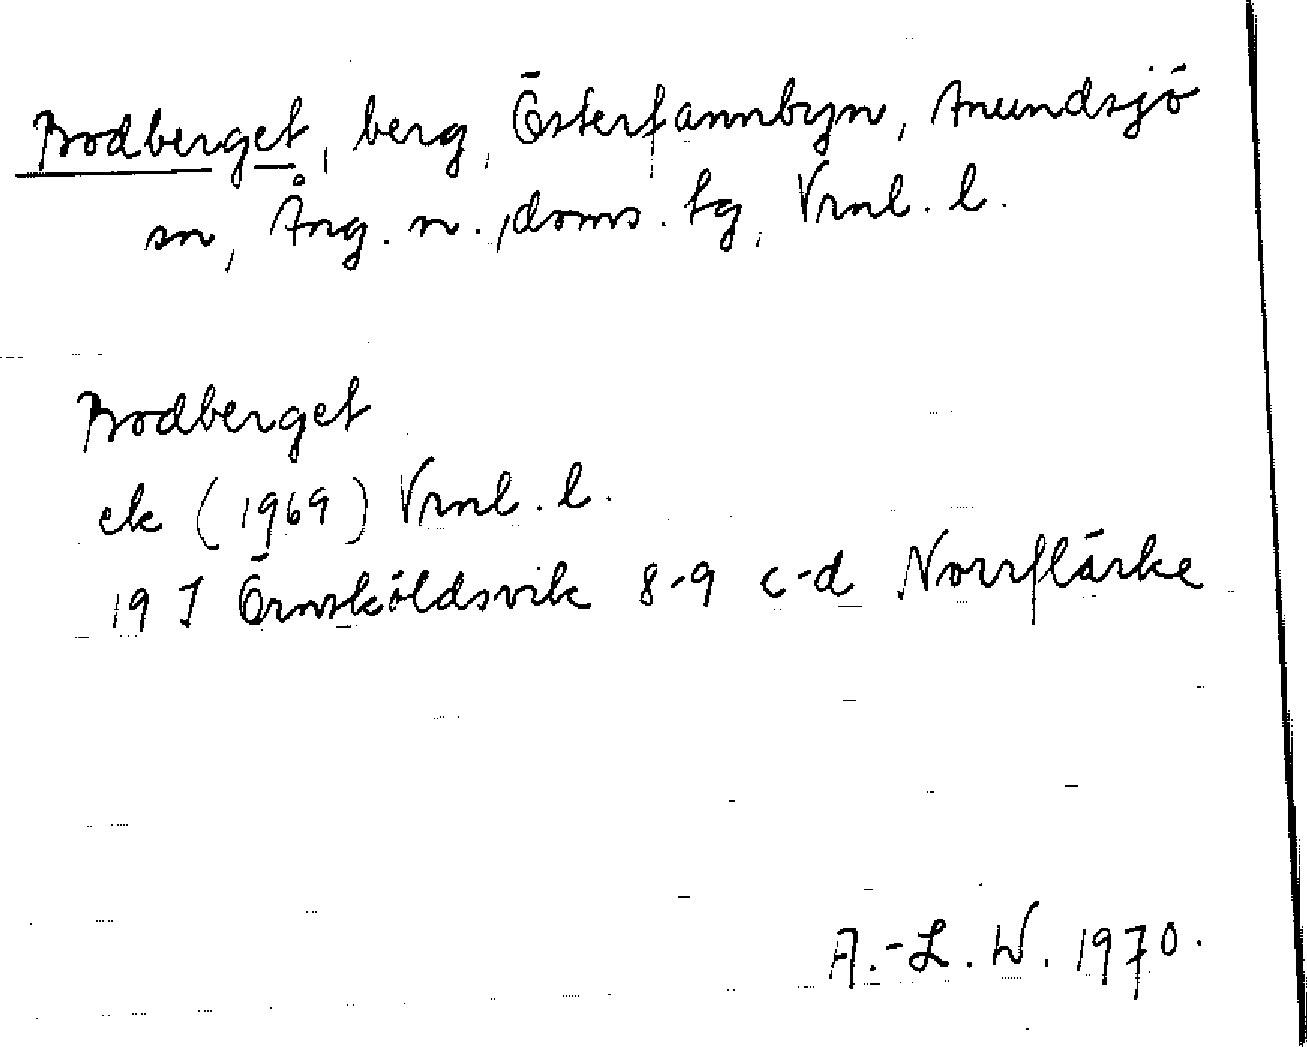 Bodberget, berg, Österfannbyn, Anundsjö
sn, Ång. n., doms. tg, Vrml. l.
Bodberget
ek (1969) Vrml. l.
19 J Örnsköldsvik 8-9 c-d Norrflärke
A.-L. W. 1970.